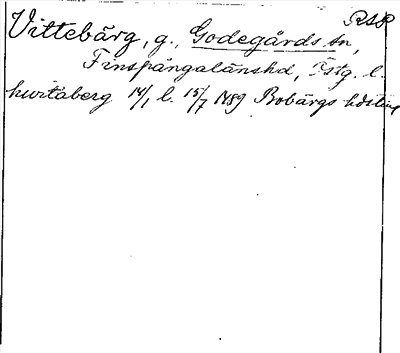 RSP
Vittebärg, g., Godegårds sn,
Finspångalänshd, Östg. l.
hwitaberg 14/1 l. 15/7 1489 Bobärgs hdsting